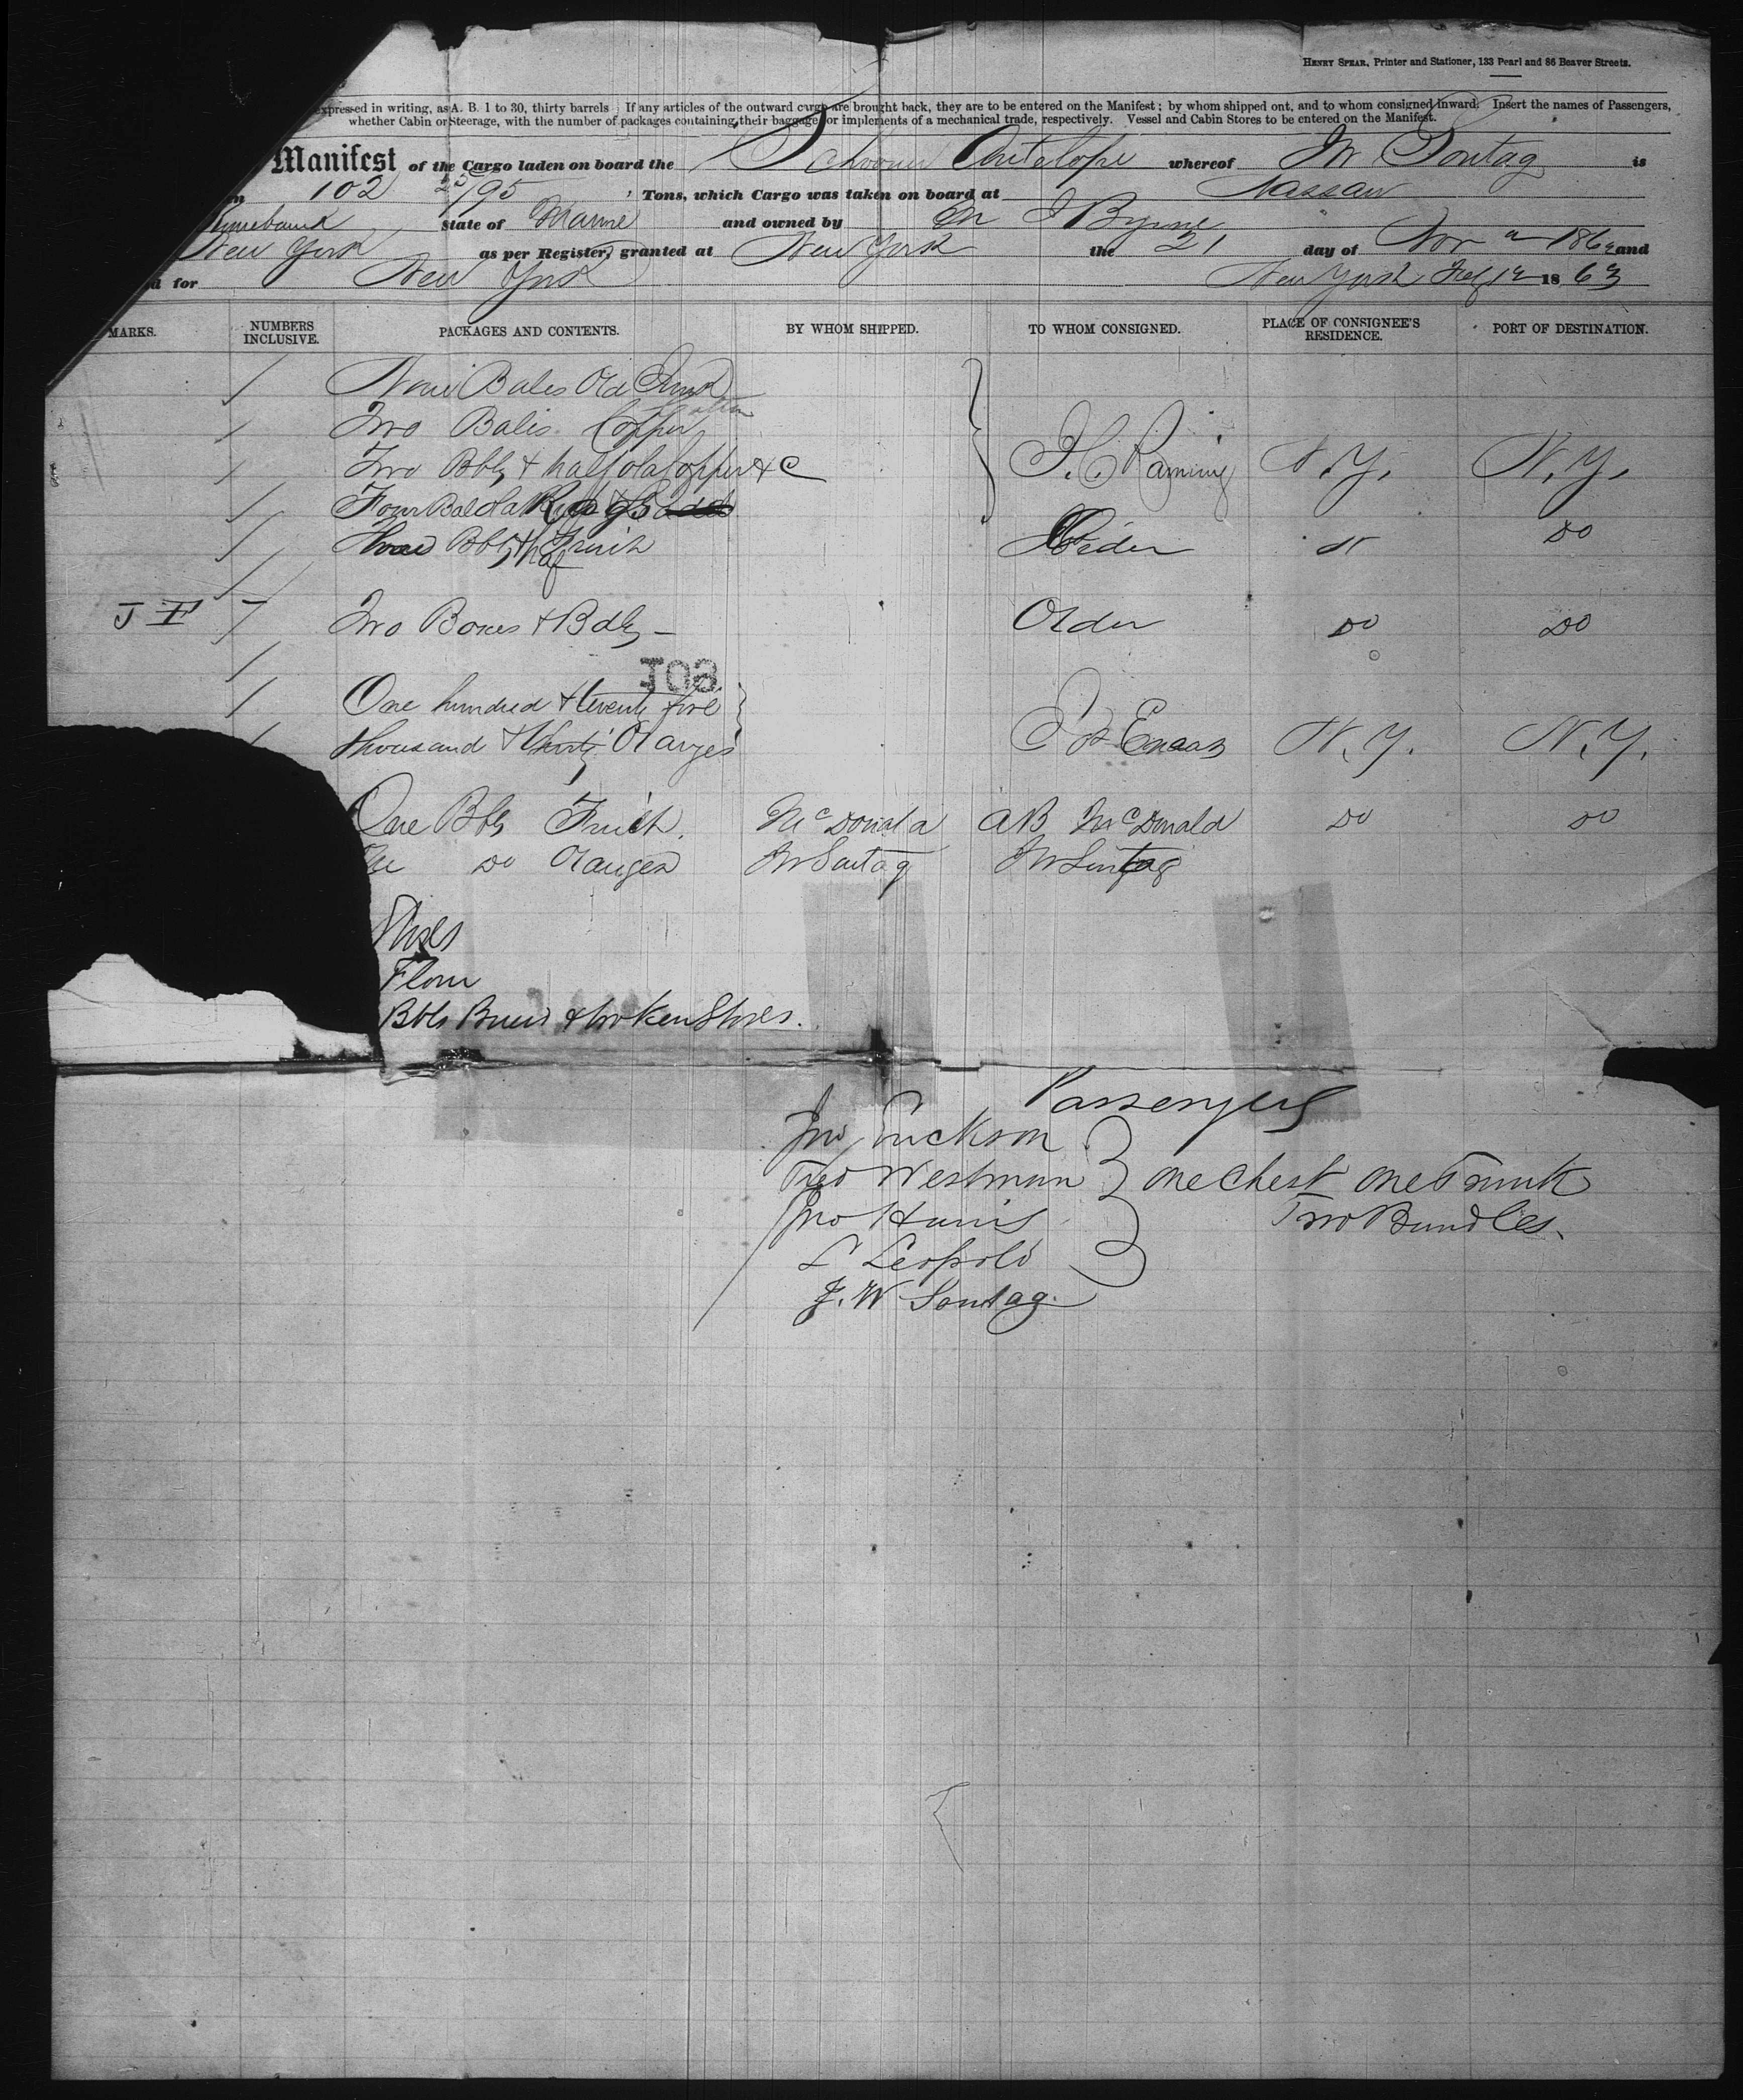 HENRY SPEAR, Printer and Stationer, 133 Pearl and 86 Beaver Streets.
expressed in writing, as A. B. 1 to 30, thirty barrels If any articles of the outward cargo are brought back, they are to be entered on the Manifest; by whom shipped out, and to whom consigned inward. Insert the names of Passengers,
whether Cabin or Steerage, with the number of packages containing their baggage, or implements of a mechanical trade, respectively. Vessel and Cabin Stores to be entered on the Manifest.
Manifest of the Cargo laden on board the Schooner Antelope whereof Sontag is
102 /95 Tons, which Cargo was taken on board at Nassau
state of Maine and owned by M J Byrne
New York as per Register, granted at New York the 21 day of Nov 1862 and
for New York New York Feby 12 1863
MARKS. NUMBERS INCLUSIVE. PACKAGES AND CONTENTS. BY WHOM SHIPPED. TO WHOM CONSIGNED. PLACE OF CONSIGNEE'S RESIDENCE. PORT OF DESTINATION.
Bales Old Junk
Two Bales Copper
Two Bbls & half old Copper & c N.Y. N.Y.
Four
Bbls & half Fruit Order Do
J F Two Boxes & Bdls Order Do Do
One hundred & twenty five
thousand & thirty Oranges N.Y. N.Y.
One Bbls Fruit. McDonald AB McDonald Do Do
Do Oranges Sontag Sontag
Stores
Flour
Bbls & broken Stores.
Passengers
Jno Erickson
Westman one Chest one Trunk
Jno Harris Two Bundles.
L Leopold
J. W Sontag.